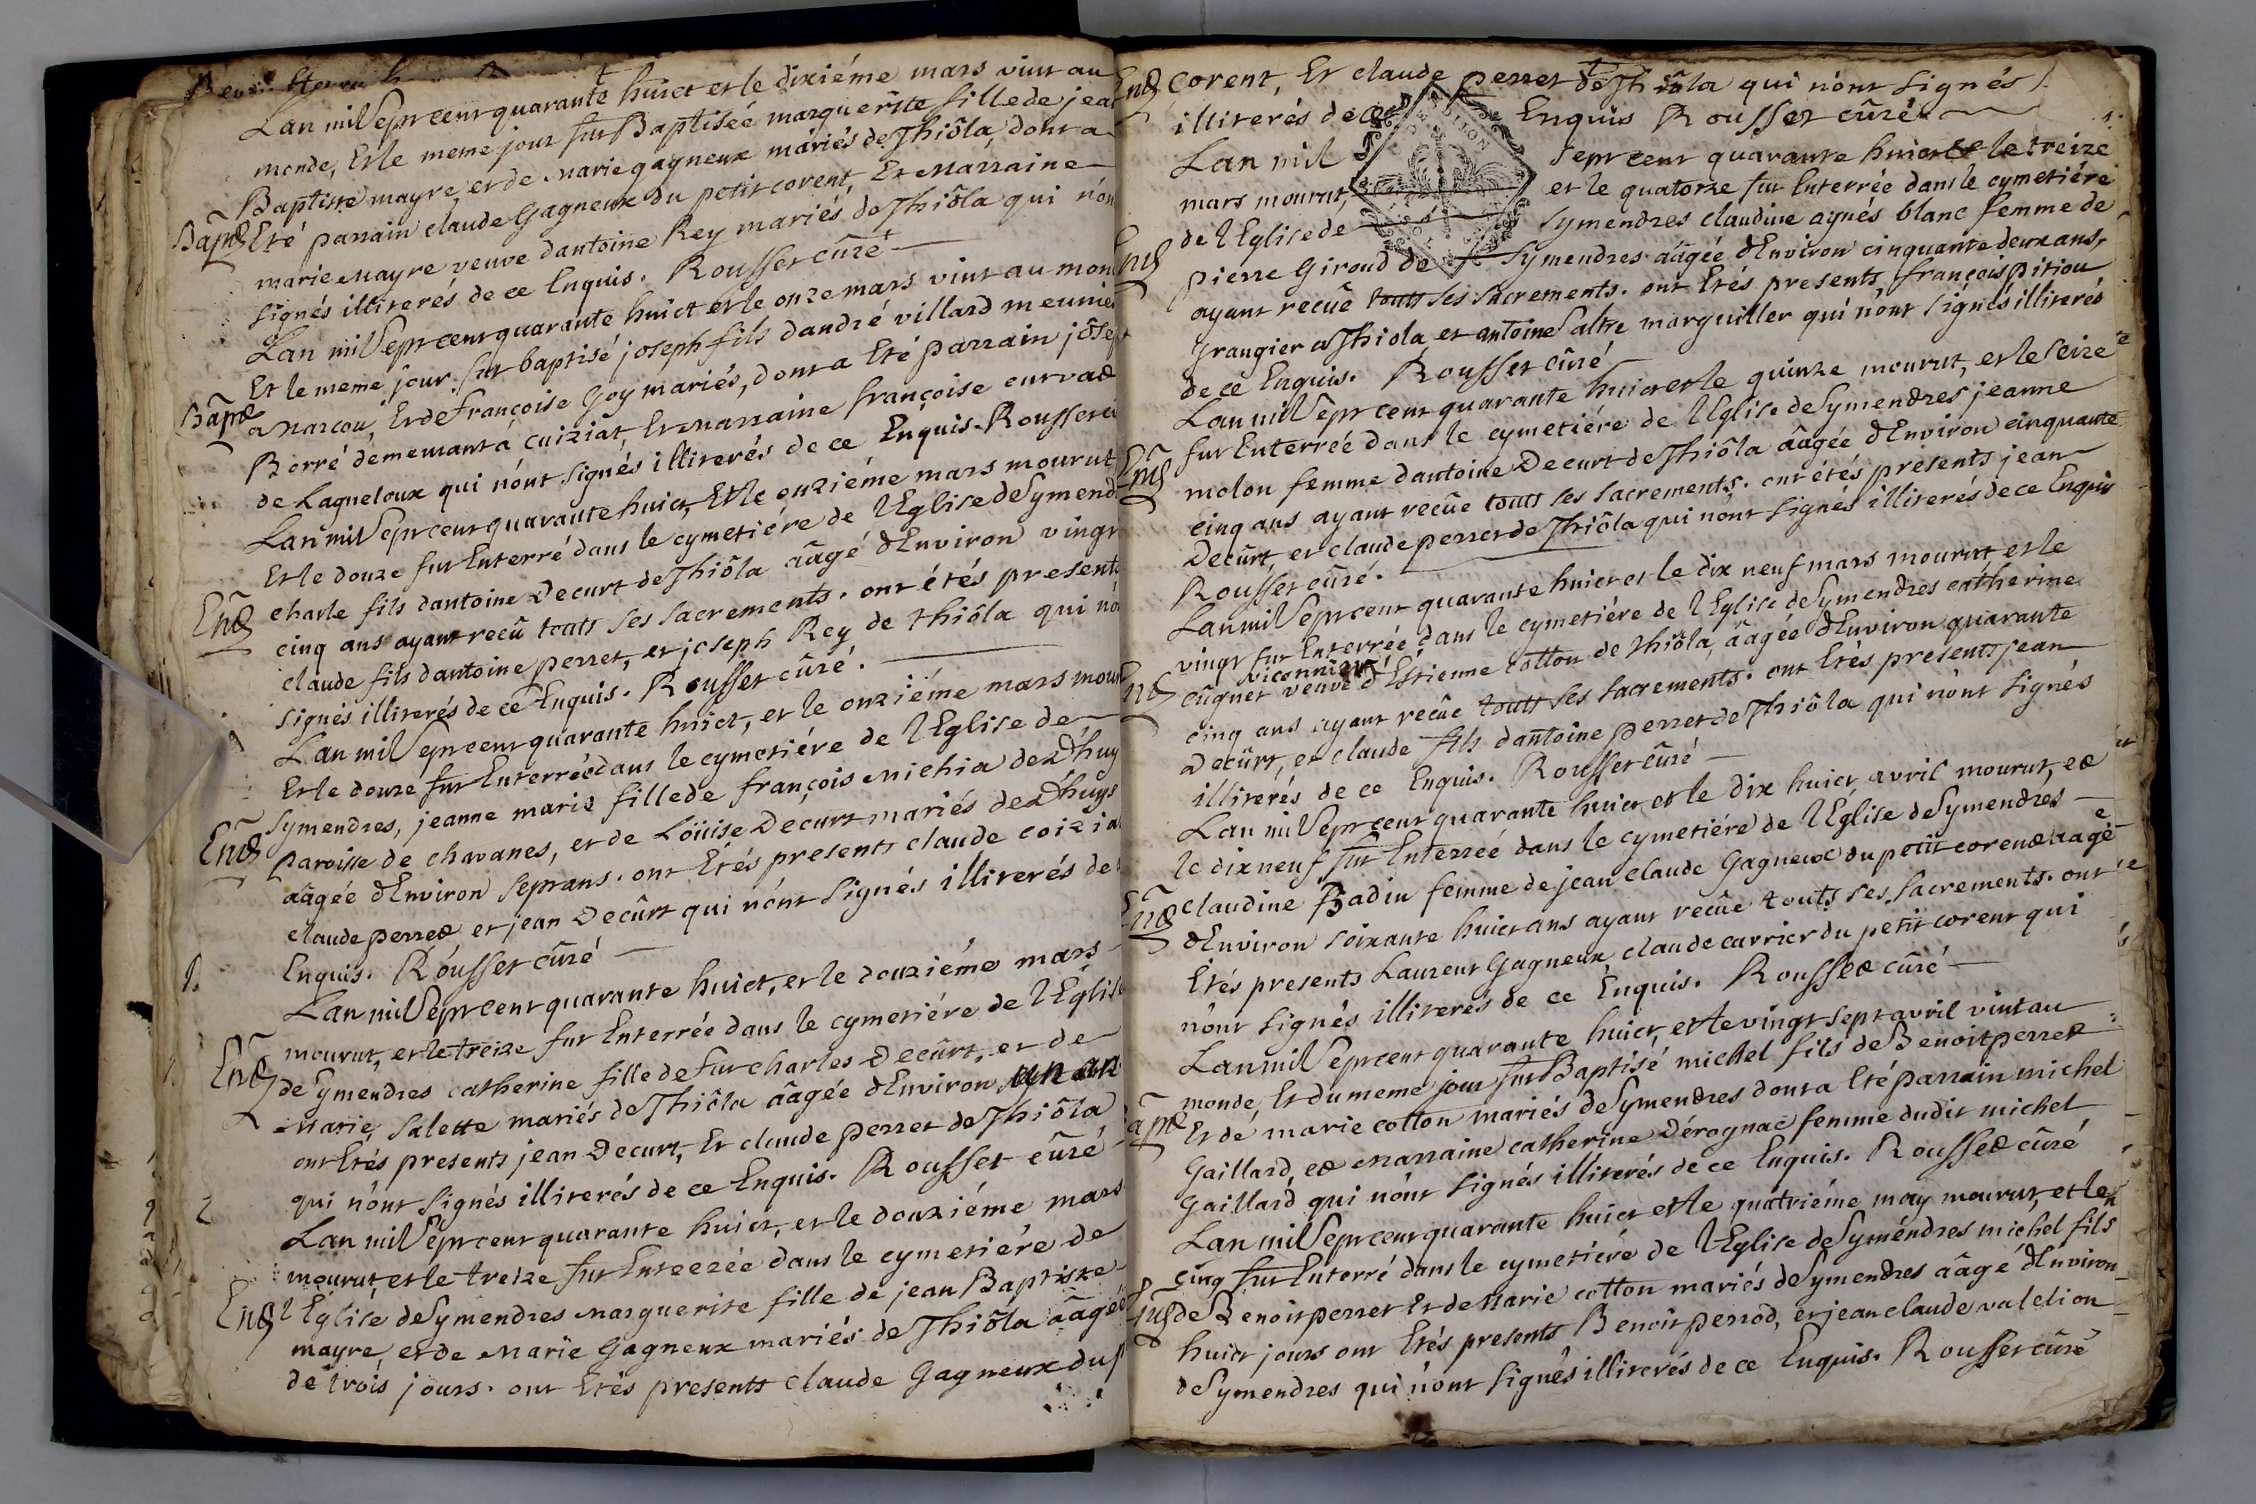 Lan mil sept cent quarante huict et le dixiéme mars vint au
monde, Et le meme jour fut Baptiséé marguerite fille de jean
Baptiste mayre, et de marie gagneux mariés de Thiôla dont a
Bapt Eté parrain claude Gagneux du petit corent, Et Marraine
marie mayre veuve dantoine Rey mariés de Thiôla qui nont
signés illiterés de ce Enquis. Rousset cûré
Lan mil sept cent quarante huict et le onze mars vint au monde
Et le meme jour fut baptisé joseph fils dandré villard meunier
Bapt a Marcou, Et de Françoise Goy mariés, dont a Eté parrain joseph
Borré demeurant á cuiziat, Et Marraine françoise curvat
de Lagneloux qui nónt signés illiterés de ce Enquis. Rousset cûré
Lan mil sept cent quarante huict, Et le onziéme mars mourut
Et le douze fut Enterré dans le cymetiére de l'Eglise de Symendres
Ent charle fils dantoine Decurt de Thiôla ââgé d'Environ vingt
cinq ans ayant recû touts ses sacrements. ont étés presents
claude fils dantoine perret, et joseph Rey de thiôla qui nónt
signés illiterés de ce Enquis. Rousset cûré.
Lan mil sept cent quarante huict, et le onziéme mars mourut
Et le douze fut Enterréé dans le cymetiére de l'Eglise de
Symendres, jeanne marie fille de françois Michia de d'huys
Ent paroisse de chavanes, et de Loüise Decurt mariés de d'huys
ââgée d'Environ sept ans. ont Etés presents claude coiziat
claude perret et jean Decûrt qui nónt signés illiterés de ce
Enquis. Rousset cûré
Lan mil sept cent quarante huict, et le douziéme mars
mourut, et le treize fut Enterrée dans le cymetiére de l'Eglise
Ent de Symendres catherine fille de fut charles Decûrt, et de
Marie Salette mariés de Thiôla ââgée d'Environ un an
ont Etés presents jean Decurt, Et claude perret de Thiôla
qui nónt signés illiterés de ce Enquis. Rousset cûré
Lan mil sept cent quarante huict, et le douziéme mars
mourut et le treize fut Enterrée dans le cymetiére de
Ent l'Eglise de Symendres Marguerite fille de jean Baptiste
mayre, et de Marie Gagneux mariés de Thiôla ââgée
de trois jours. ont Etés presents claude Gagneux du p
Ent corent, Et claude perret de Thiôla qui nónt signés
illiterés de ce Enquis Rousset cûré
Lan mil sept cent quarante huict et le treize
mars mourut, et le quatorze fut Enterrée dans le cymetiére
de l'Eglise de Symendres claudine agnés blanc femme de
Ent pierre Giroud de Symendres ââgée d'Environ cinquante deux ans,
ayant recûe touts ses sacrements. ont Etés presents, françois pitiou
Grangier a Thiola, et antoine Saltre marguiller qui nónt signés illiterés
de ce Enquis. Rousset cûré
Lan mil sept cent quarante huict et le quinze mourut, et le seize
fut Enterrée dans le cymetiére de l'Eglise de Symendres jeanne
Ent molon femme dantoine Decurt de Thiôla ââgée d'Environ cinquante
cinq ans ayant recûe touts ses sacrements. ont étés presents jean
Decûrt, et claude perret de Thiôla qui nónt signés illiterés de ce Enquis
Rousset cûré.
Lan mil sept cent quarante huict et le dix neuf mars mourut et le
vingt fut Enterrée dans le cymetiére de l'Eglise de Symendres catherine
Ent cuguet veuve d'Estienne cotton de thiôla, ââgée d'Environ quarante
cinq ans ayant recûe touts ses sacrements. ont Etés presents jean
Decûrt, et claude fils dantoine perret de Thiôla qui nónt signés
illiterés de ce Enquis. Rousset cûré
Lan mil sept cent quarante huict et le dix huict avril mourut, et
le dix neuf fut Enterréé dans le cymetiére de l'Eglise de Symendres
Ent claudine Badin femme de jean claude Gagneux du petit corent aagée
d'Environ soixante huict ans ayant recûe touts ses sacrements. ont
Etés presents Laurent Gagneux claude carrier du petit corent qui
nónt signés illiterés de ce Enquis. Rousset cûré
Lan mil sept cent quarante huict, et le vingt sept avril vint au
monde, Et du meme jour fut Baptisé michel fils de Benoit perret
Bapt Et de marie cotton mariés de Symendres dont a Eté parrain michel
Gaillard, et Marraine catherine Dérognat femme dudit michel
Gaillard qui nónt signés illiterés de ce Enquis. Rousset cûré
Lan mil sept cent quarante huict et le quatriéme may mourut, et le
cinq fut Enterré dans le cymetiére de l'Eglise de Symendres michel fils
Ent de Benoit perret Et de Marie cotton mariés de Symendres ââgé d'Environ
huict jours ont Etés presents Benoit perrod, et jean claude valelion
de Symendres qui nónt signés illiterés de ce Enquis. Rousset cûré